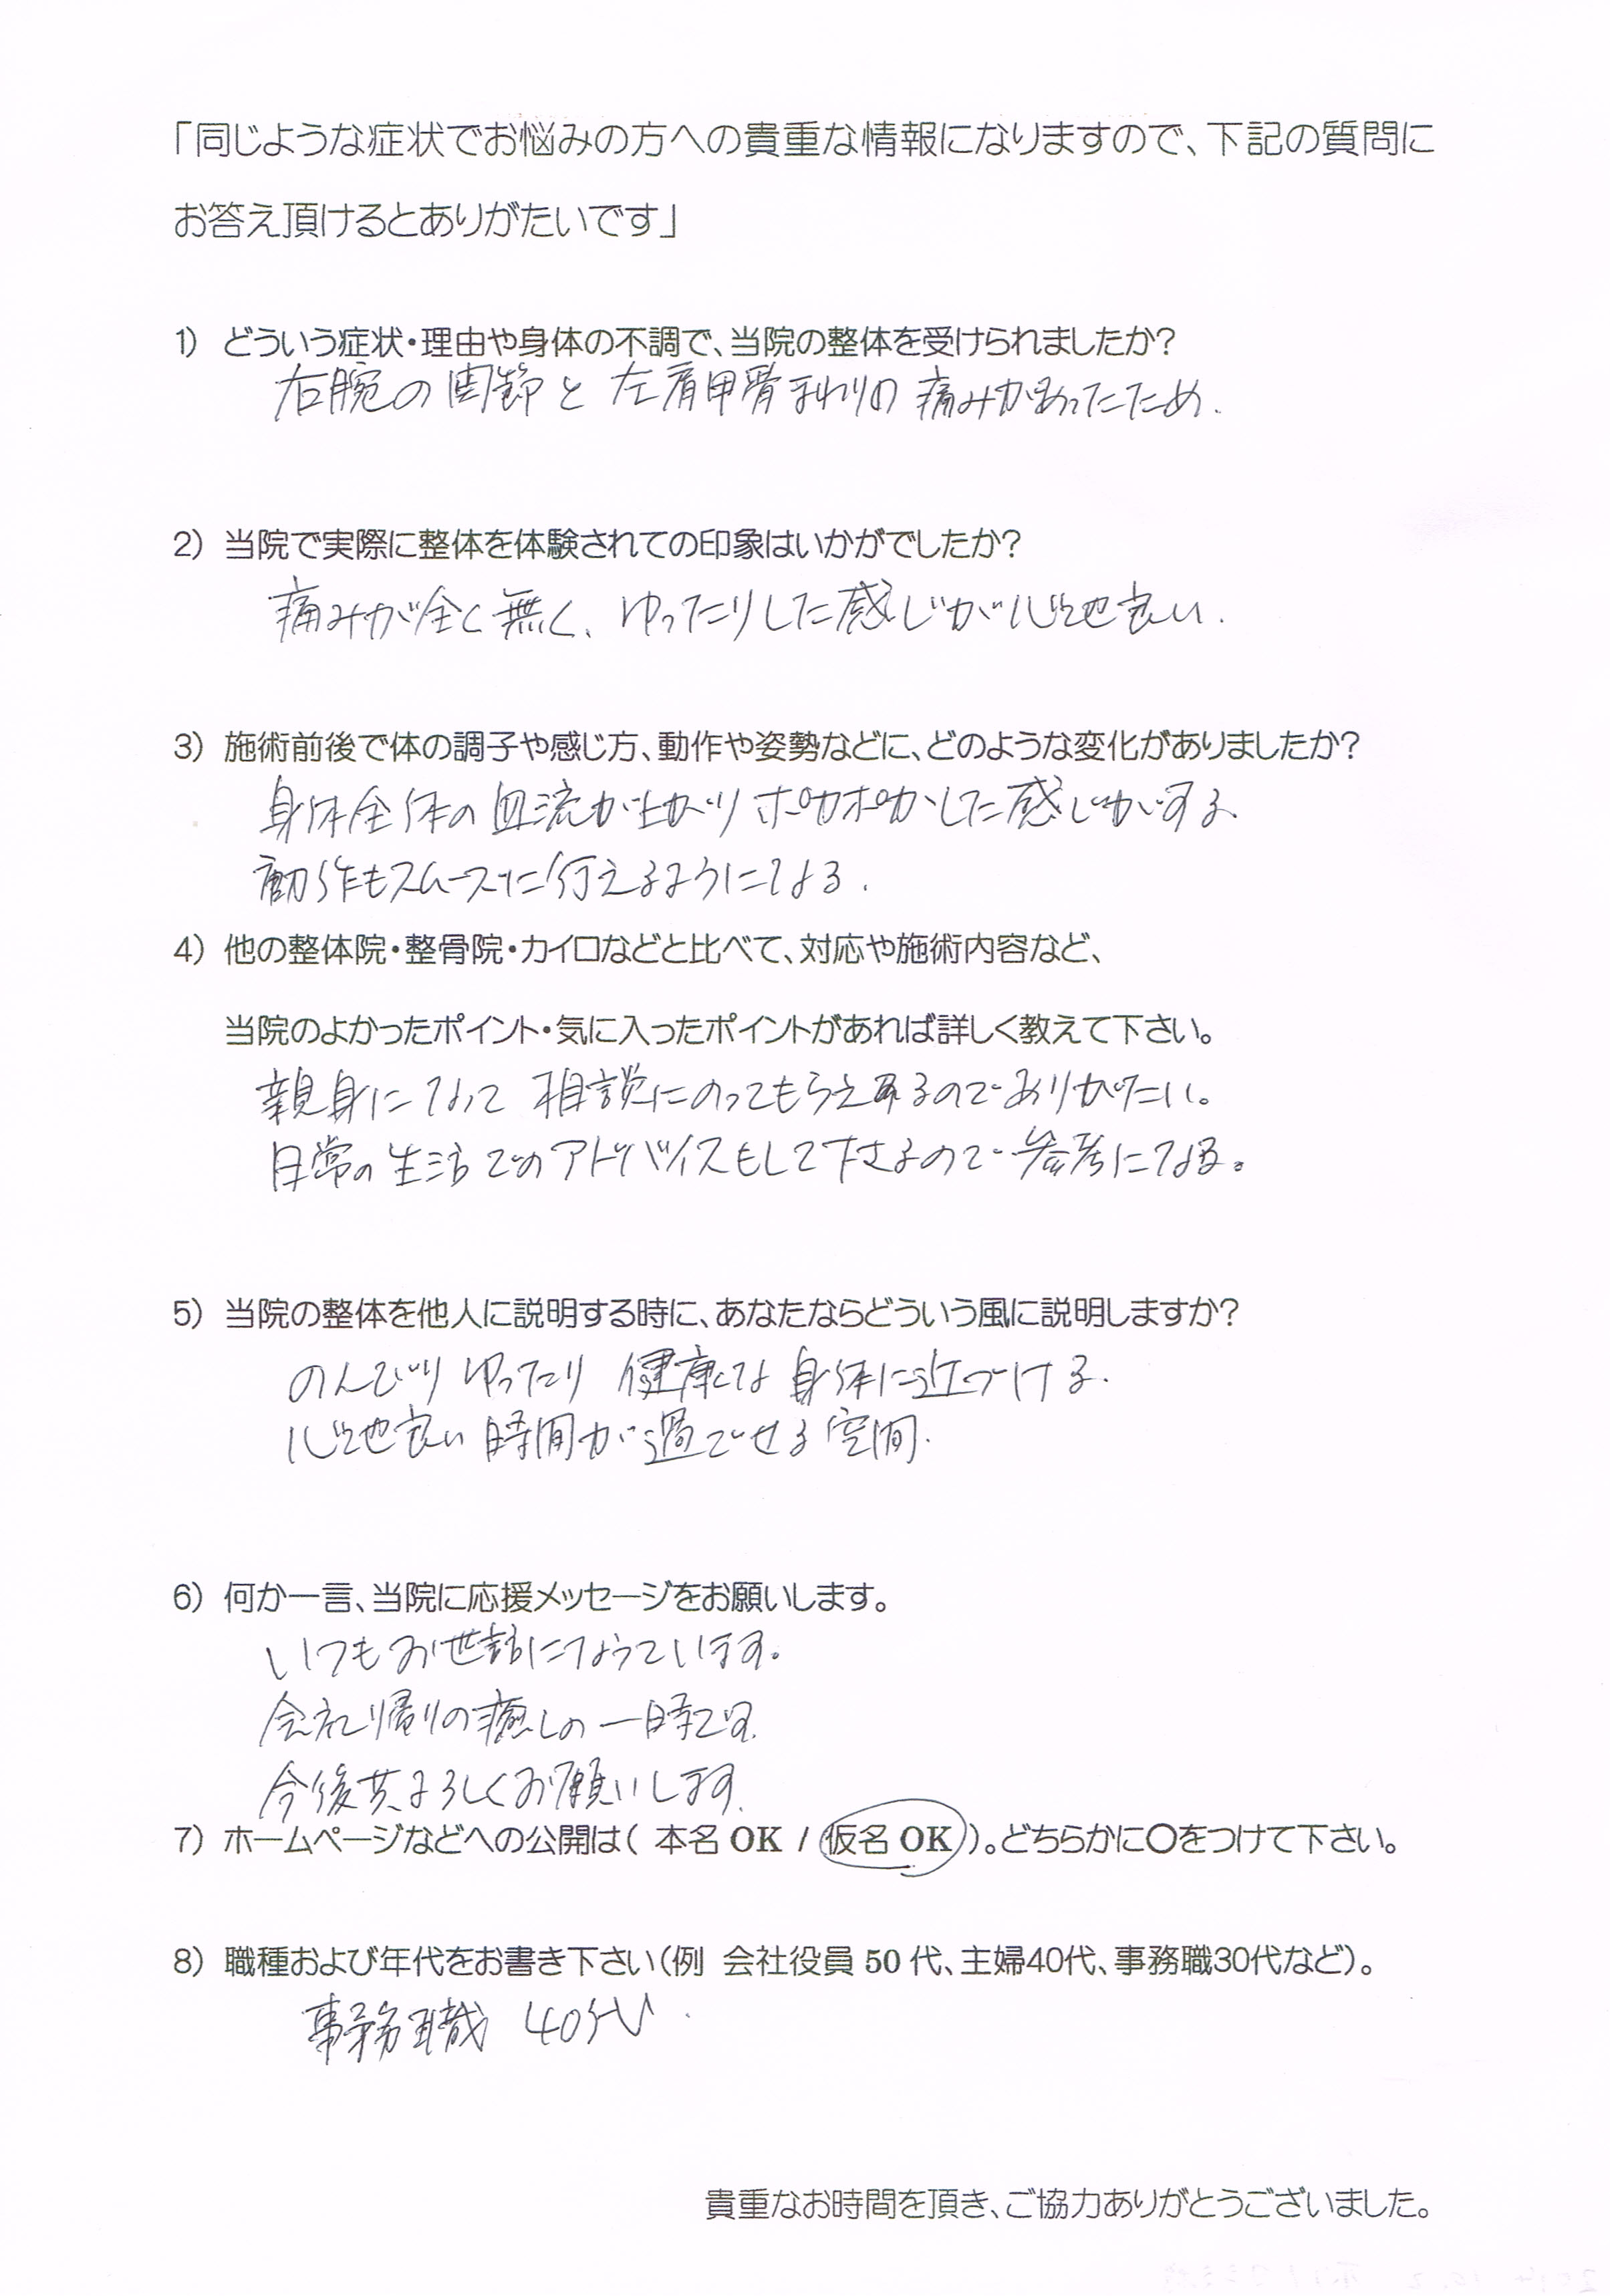 「同じような症状でお悩みの方への貴重な情報になりますので、下記の質問に
お答え頂けるとありがたいです」
1) どういう症状・理由や身体の不調で、当院の整体を受けられましたか?
右腕の関節と左肩甲骨まわりの痛みがあったため.
2) 当院で実際に整体を体験されての印象はいかがでしたか?
痛みが全く無く、ゆったりした感じが心地良い.
3) 施術前後で体の調子や感じ方、動作や姿勢などに、どのような変化がありましたか?
身体全体の血流が上がりポカポカした感じがする
動作もスムースに行えるようになる.
4) 他の整体院・整骨院・カイロなどと比べて、対応や施術内容など、
当院のよかったポイント・気に入ったポイントがあれば詳しく教えて下さい。
親身になって相談にのってもらえるのでありがたい。
日常の生活でのアドバイスもして下さるので参考になる。
5) 当院の整体を他人に説明する時に、あなたならどういう風に説明しますか?
のんびりゆったり健康な身体に近づける.
心地良い時間が過ごせる空間.
6) 何か一言、当院に応援メッセージをお願いします。
いつもお世話になっています。
会社帰りの癒しの一時です.
今後共よろしくお願いします.
7) ホームページなどへの公開は( 本名 OK / 仮名 OK )。どちらかに〇をつけて下さい。
8) 職種および年代をお書き下さい(例 会社役員 50 代、主婦40代、事務職30代など)。
事務職 40代
貴重なお時間を頂き、ご協力ありがとうございました。